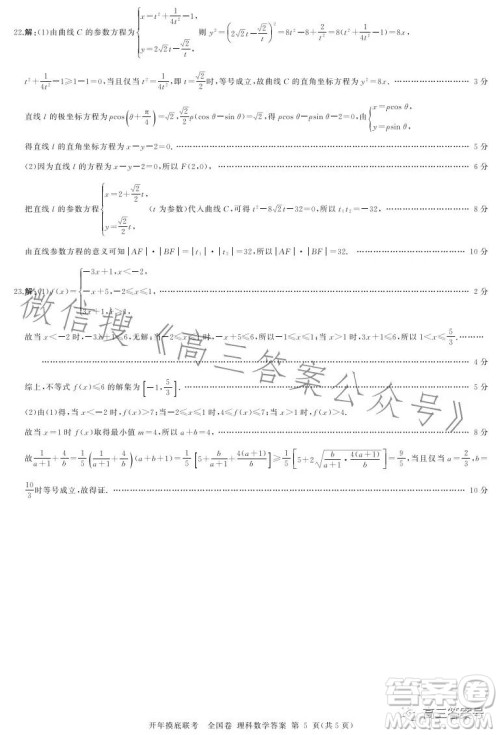 22.解:(1)由曲线 C 的参数方程为{x=t²+1/(4t²)-1, y=2√2t-√2/t, 则 y²=(2√2t-√2/t)²=8t²-8+2/t²=8(t²+1/(4t²)-1)=8x,
t²+1/(4t²)-1≥1-1=0,当且仅当 t²=1/(4t²),即 t=±√2/2时,等号成立,故曲线 C 的直角坐标方程为 y²=8x. …… 3 分
直线 l 的极坐标方程为 ρcos(θ+π/4)=√2,√2/2ρ(cos θ-sin θ)=√2,由{x=ρcos θ, y=ρsin θ,
得直线 l 的直角坐标方程为 x-y-2=0. …… 5 分
(2)因为直线 l 的方程为 x-y-2=0,所以 F(2,0). …… 6 分
把直线 l 的参数方程{x=2+√2/2t, y=√2/2t, (t 为参数)代入曲线 C,可得 t²-8√2t-32=0,所以 t₁t₂=-32. …… 8 分
由直线参数方程的意义可知|AF|·|BF|=|t₁|·|t₂|=32,所以|AF|·|BF|=32. …… 10 分
23.解:(1)f(x)={-3x+1,x<-2, -x+5,-2≤x≤1, …… 2 分
故当 x<-2 时,-3x+1≤6,无解;当-2≤x≤1 时,-x+5≤6,所以-1≤x≤1;当 x>1 时,3x+1≤6,所以 1<x≤5/3. ……
…… 4 分
综上,不等式 f(x)≤6 的解集为[-1,5/3]. …… 5 分
(2)由(1)得,当 x<-2 时,f(x)>7;当-2≤x≤1 时,4≤f(x)≤7;当 x>1 时,f(x)>4.
故当 x=1 时 f(x)取得最小值 m=4,所以 a+b=4. …… 8 分
故1/(a+1)+4/b=1/5(1/(a+1)+4/b)(a+b+1)=1/5[5+b/(a+1)+4(a+1)/b]≥1/5[5+2√(b/(a+1)·4(a+1)/b)]=9/5,当且仅当 a=2/3,b=
10/3时等号成立,故得证. …… 10 分
微信搜《高三答案公众号》
开年摸底联考 全国卷 理科数学答案 第 5 页(共 5 页)
高三答案号